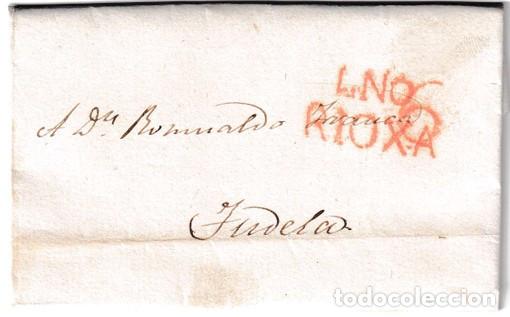 L.NO
6
RIOXA
A Dn. Romualdo Franco
Tudela
todocoleccion.net